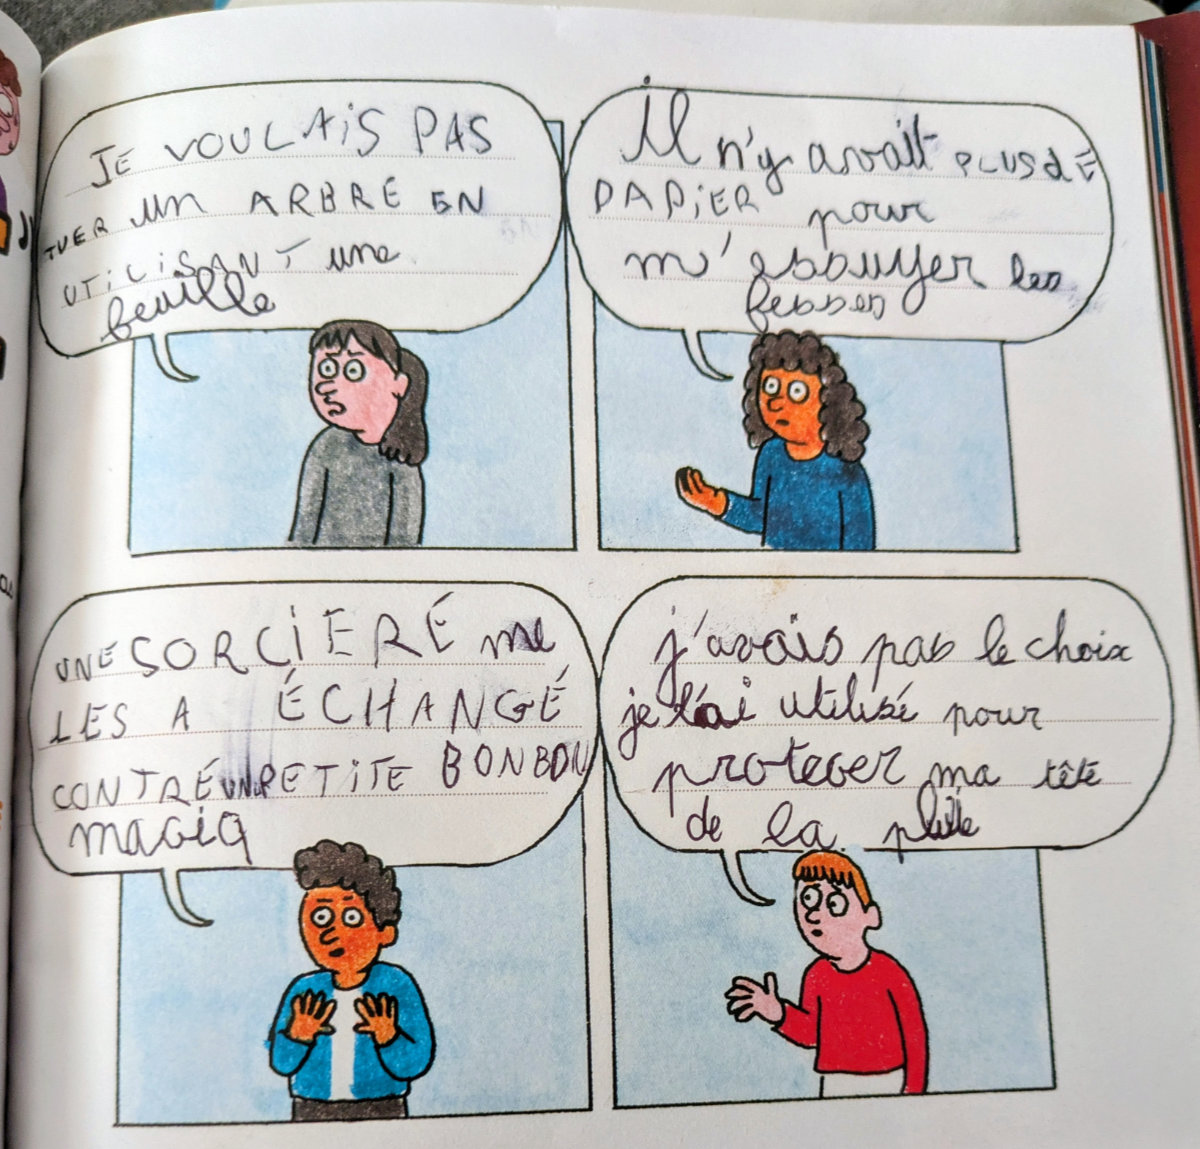 JE VOULAiS PAS
TUER un ARBRE EN
UTiLiSANT une
feuille
il n'y avait PLUS dE
PAPiER pour
m'essuyer les
fesses
UNE SORCiERE me
LES A ÉCHANGÉ
CONTRE UN PETiTE BONBON
magiq
j'avais pas le choix
je l'ai utilisé pour
proteger ma tête
de la pluie